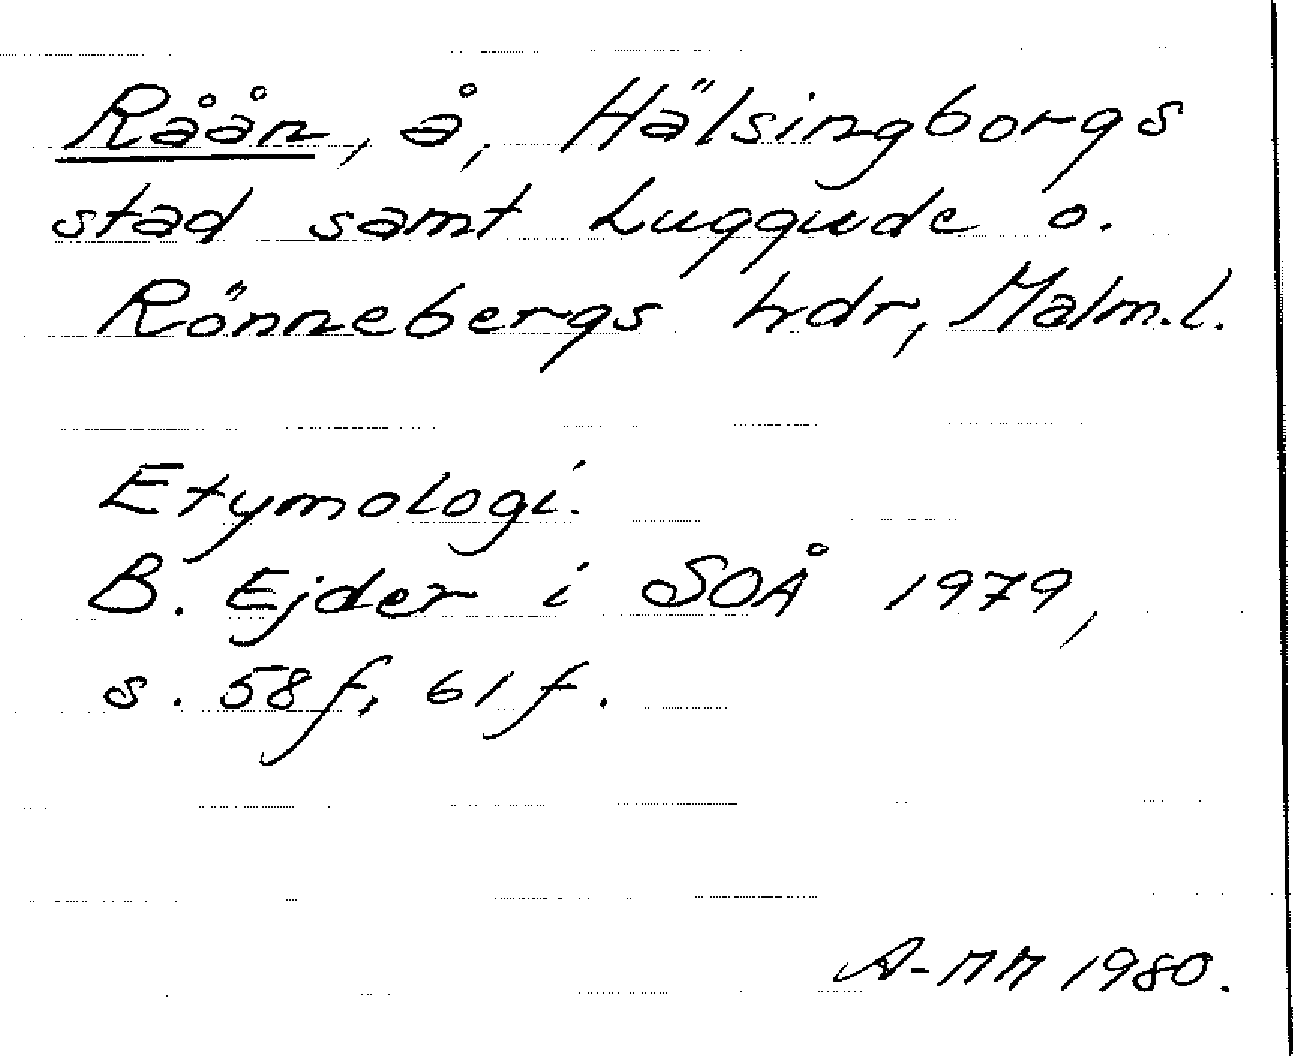 Råån, å, Hälsingborgs
stad samt Luggude o.
Rönnebergs hdr, Malm.l.
Etymologi.
B. Ejder i SOÅ 1979,
s. 58f, 61f.
A-MM 1980.